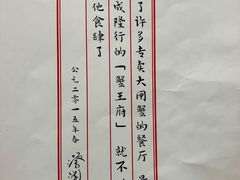 了许多专卖大闸蟹的餐厅
成隆行的「蟹王府」就不
他食肆了
公元二零一五年春